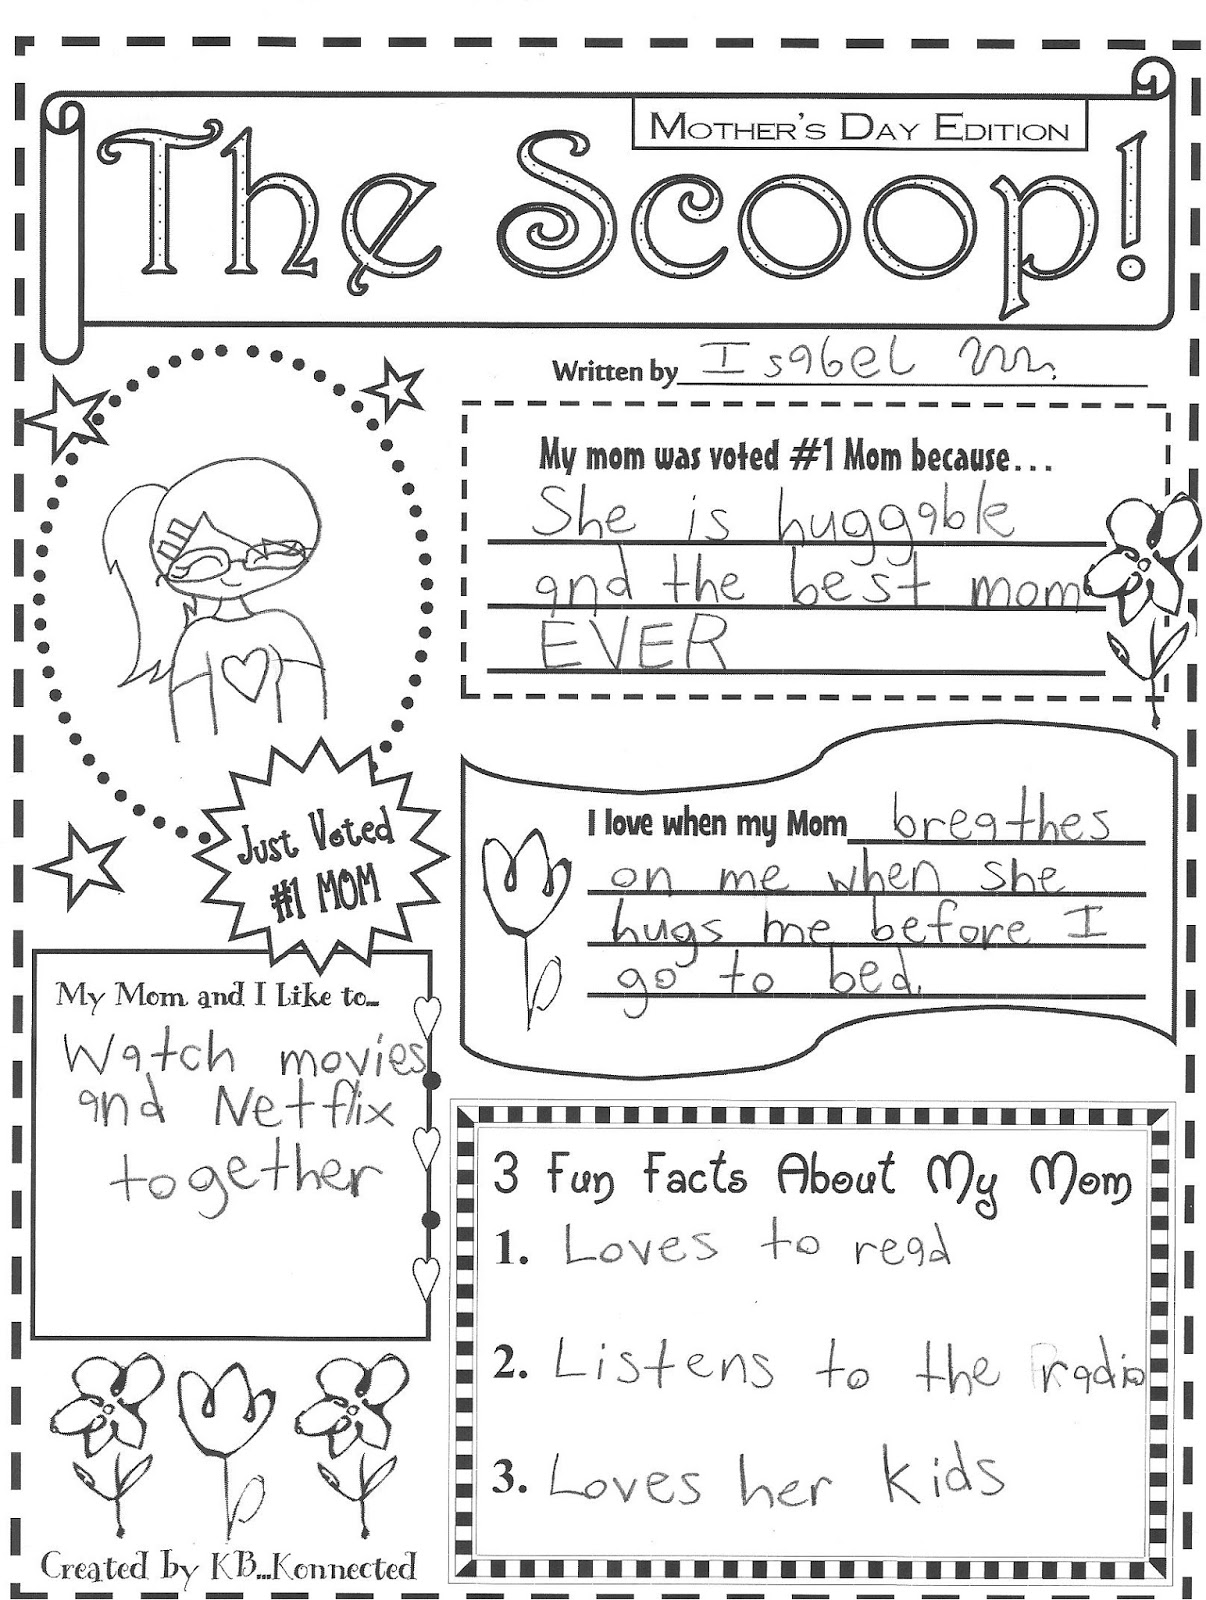 MOTHER'S DAY EDITION
The Scoop!
Written by Isabel
My mom was voted #1 Mom because...
She is huggable
and the best mom
EVER
Just Voted
#1 MOM
I love when my Mom breathes
on me when she
hugs me before I
go to bed.
My Mom and I Like to...
Watch movies
and Netflix
together
3 Fun Facts About My Mom
1. Loves to read
2. Listens to the radio
3. Loves her kids
Created by KB...Konnected